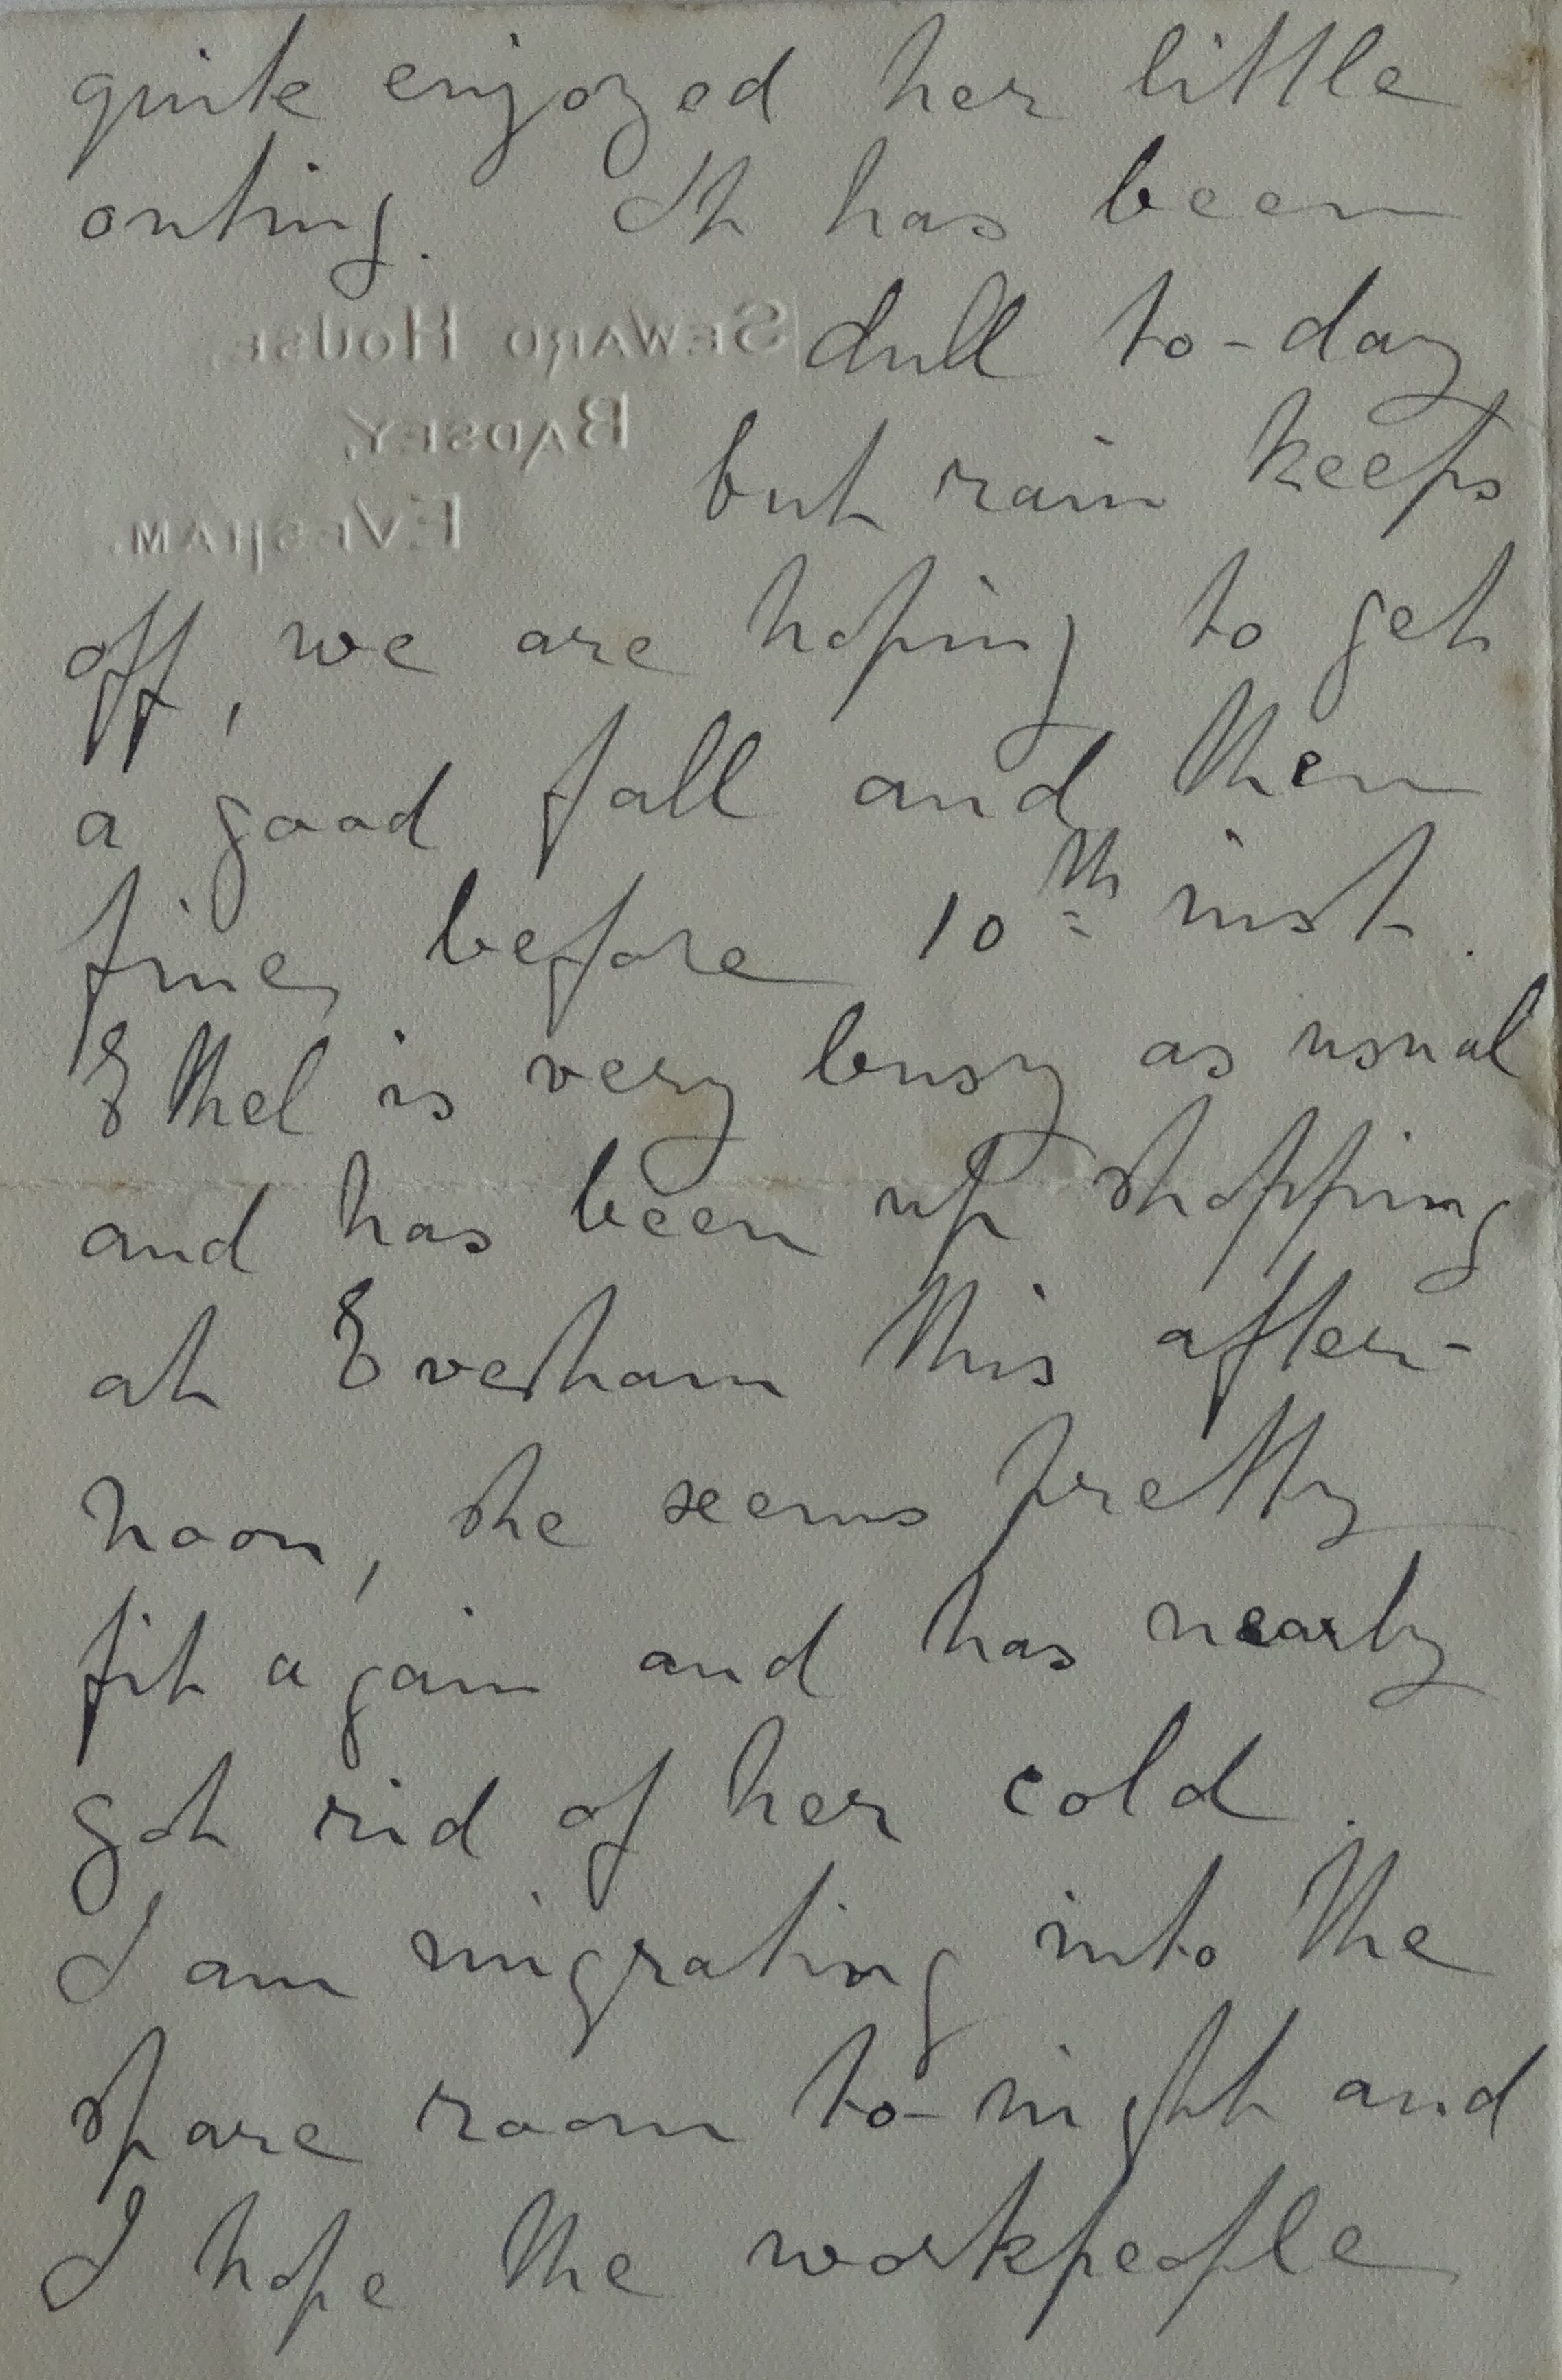 quite enjoyed her little
outing. It has been
SEWARD HOUSE, dull to-day
BADSEY,
but rain keeps
EVESHAM.
off, we are hoping to get
a good fall and then
fine, before 10th inst.
Ethel is very busy as usual
and has been up shopping
at Evesham this after-
noon, she seems pretty
fit again and has nearly
got rid of her cold.
I am migrating into the
spare room to-night and
I hope the workpeople